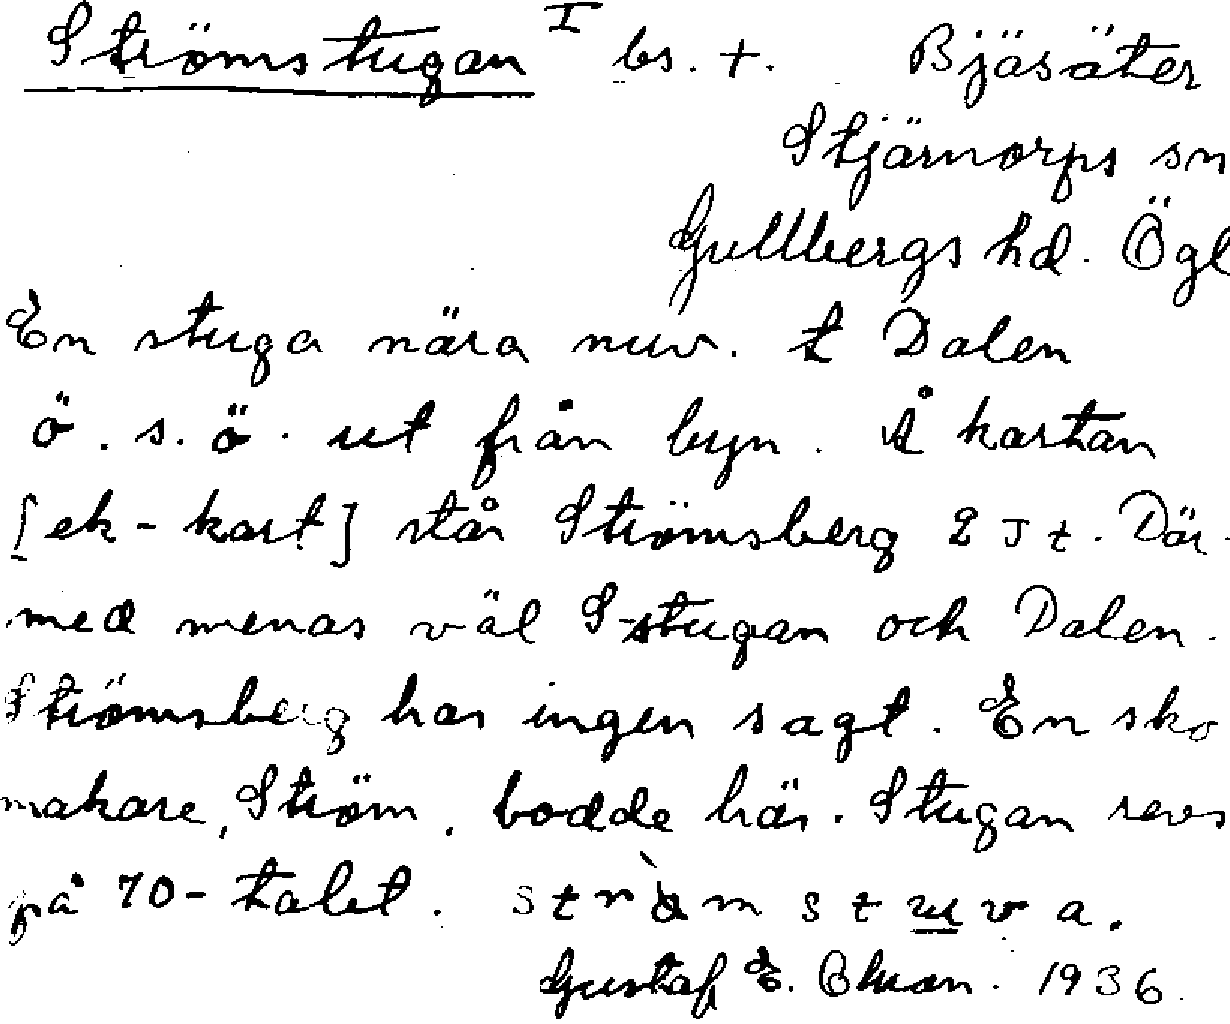 Strömstugan I bs. +. Bjäsäter
Stjärnorps sn
Gullbergs hd. Ögl
En stuga nära nuv. t Dalen
ö. s. ö. ut från byn. Å kartan
[ek-kart] står Strömsberg 2 J t. Där-
med menas väl S-stugan och Dalen.
Strömsberg har ingen sagt. En sko
makare, Ström, bodde här. Stugan revs
på 70-talet.
Gustaf E. 1936.